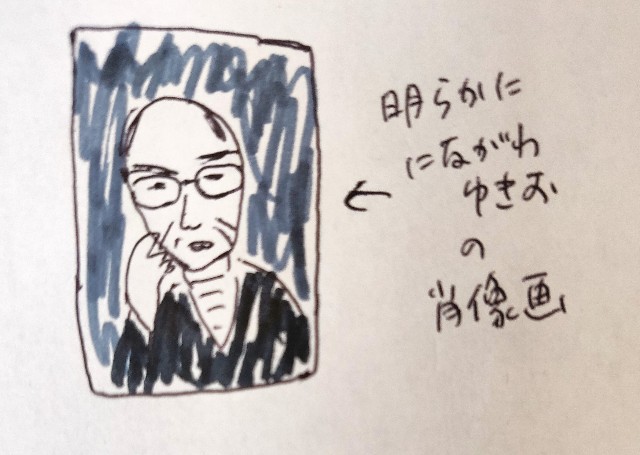 明らかに
にながわ
ゆきお
の
肖像画